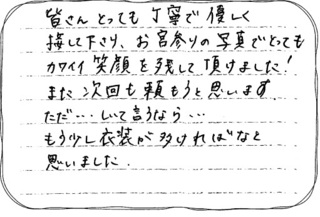 皆さんとっても丁寧で優しく
接して下さり、お宮参りの写真でとっても
カワイイ笑顔を残して頂けました!
また次回も頼もうと思います。
ただ…しいて言うなら…
もう少し衣装が多ければなと
思いました.